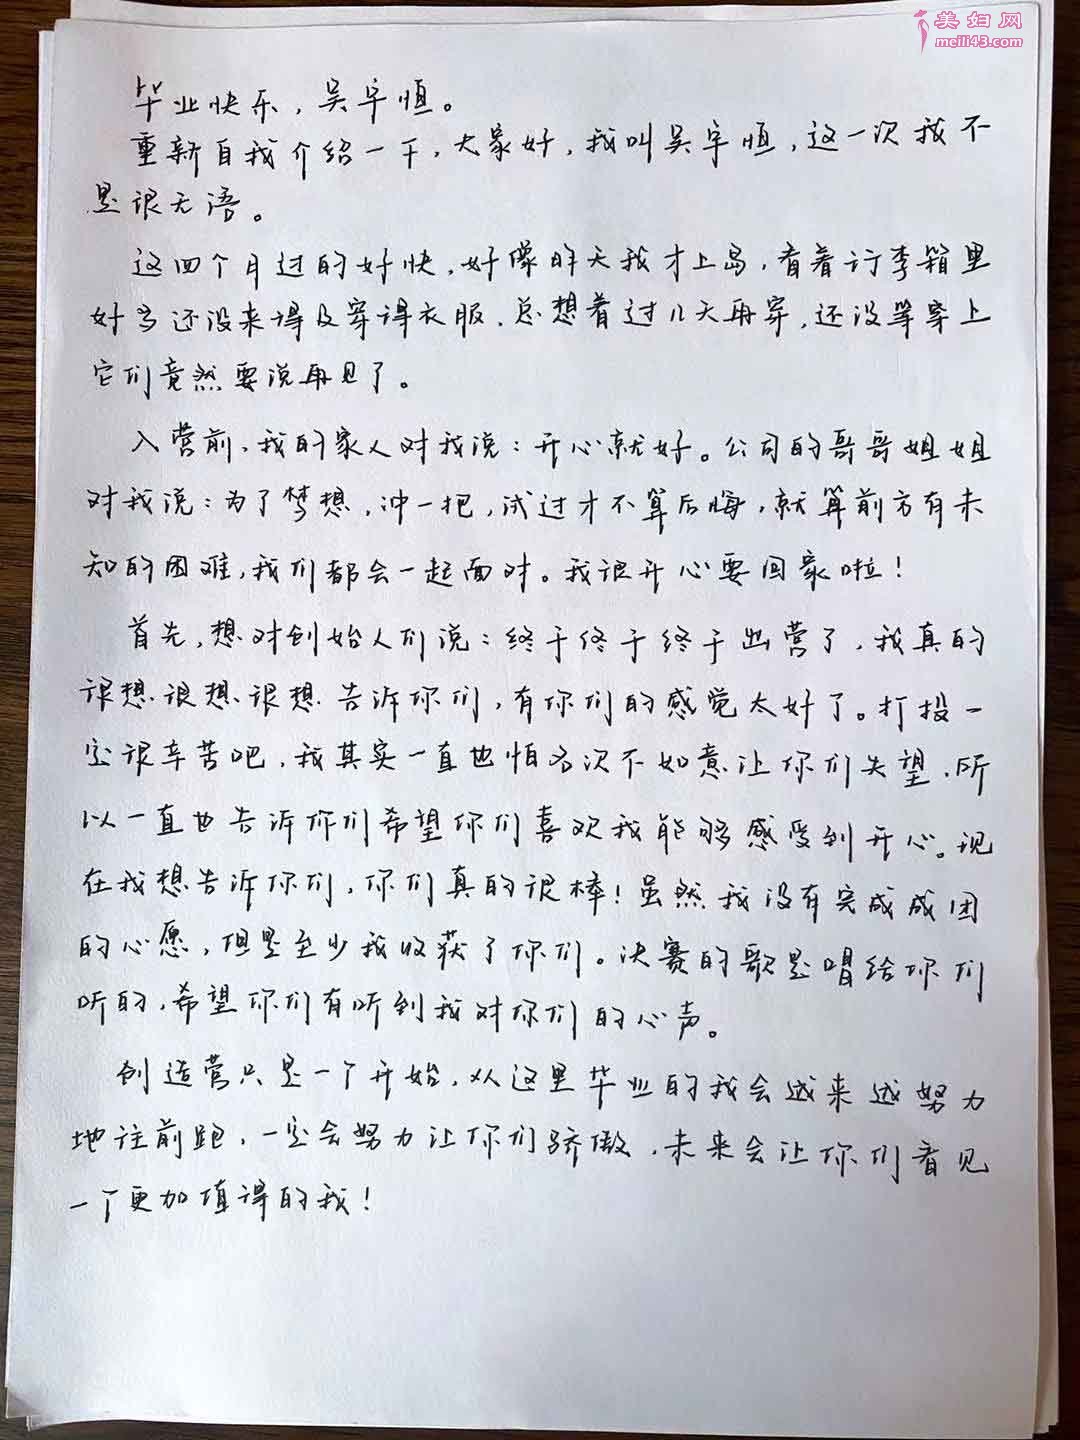 美妇网
meili43.com
毕业快乐，吴宇恒。
重新自我介绍一下，大家好，我叫吴宇恒，这一次我不
是很无语。
这四个月过的好快，好像昨天我才上岛，看着行李箱里
好多还没来得及穿得衣服，总想着过几天再穿，还没等穿上
它们竟然要说再见了。
入营前，我的家人对我说：开心就好。公司的哥哥姐姐
对我说：为了梦想，冲一把，试过才不算后悔，就算前方有未
知的困难，我们都会一起面对。我很开心要回家啦！
首先，想对创始人们说：终于终于终于出营了，我真的
很想很想很想告诉你们，有你们的感觉太好了。打投一
定很辛苦吧，我其实一直也怕名次不如意让你们失望，所
以一直也告诉你们希望你们喜欢我能够感受到开心。现
在我想告诉你们，你们真的很棒！虽然我没有完成成团
的心愿，但是至少我收获了你们。决赛的歌是唱给你们
听的，希望你们有听到我对你们的心声。
创造营只是一个开始，从这里毕业的我会越来越努力
地往前跑，一定会努力让你们骄傲，未来会让你们看见
一个更加值得的我！